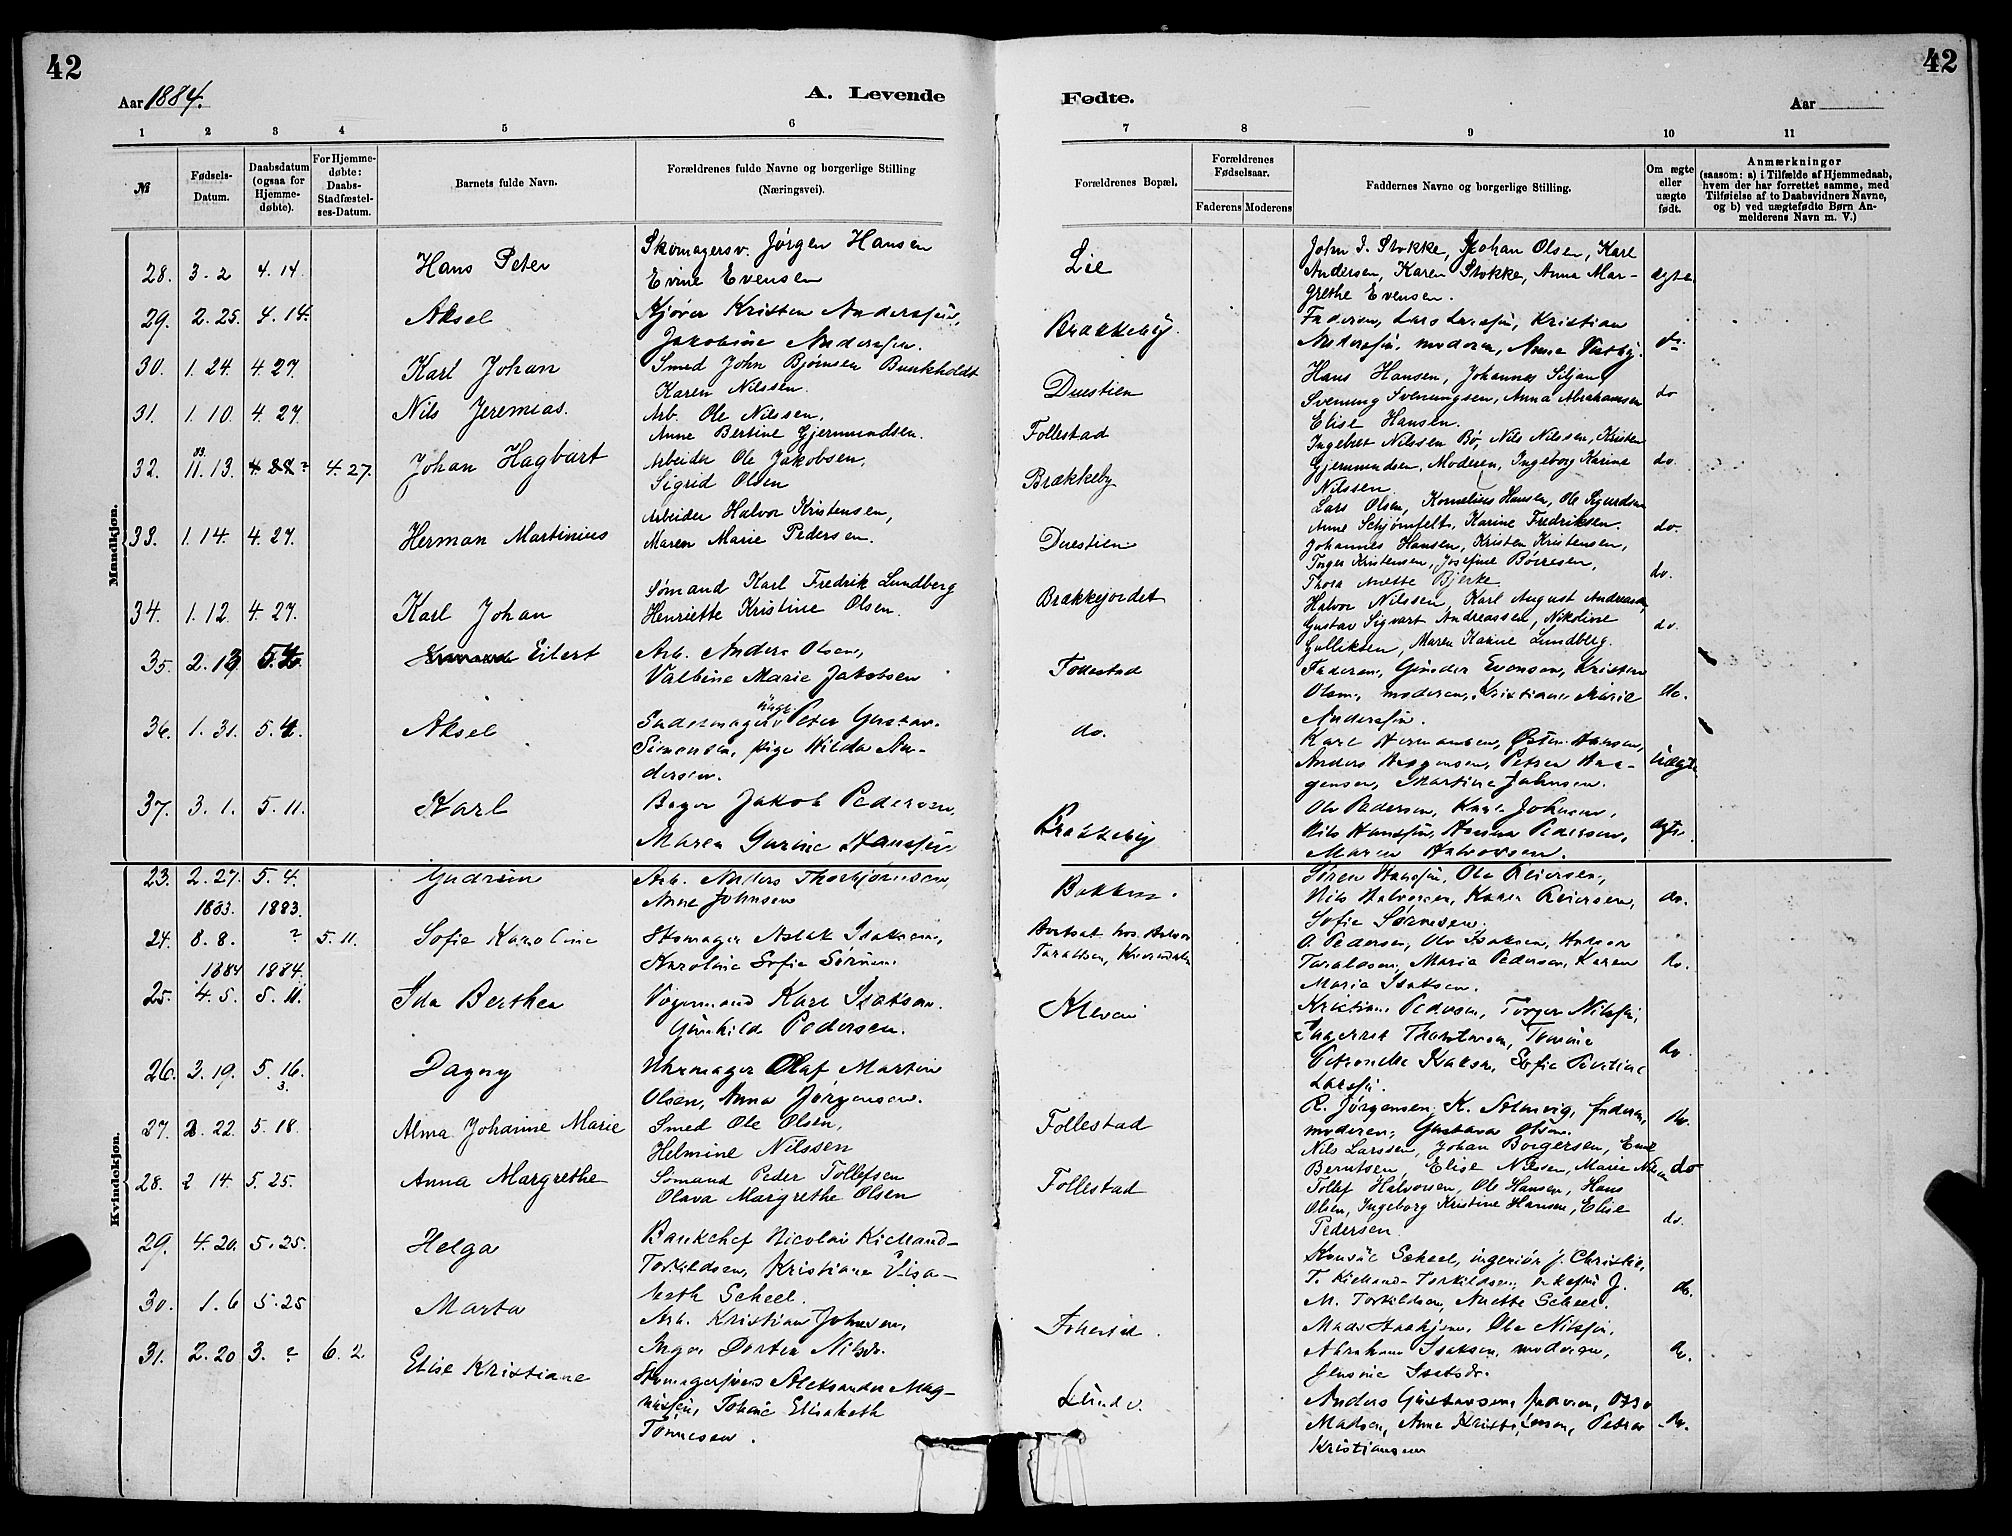 42
42
Aar 1884.
A. Levende
Fødte.
Aar
1 2 3 4 5 6 7 8 9 10 11
№
Fødsels-Datum.
Daabsdatum (ogsaa for Hjemme-døbte).
For Hjemme-døbte: Daabs-Stadfæstel-ses-Datum.
Barnets fulde Navn.
Forældrenes fulde Navne og borgerlige Stilling (Næringsvei).
Forældrenes Bopæl.
Forældrenes Fødselsaar.
Faderens Moderens
Faddernes Navne og borgerlige Stilling.
Om ægte eller uægte født.
Anmærkninger
(saasom: a) i Tilfælde af Hjemmedaab,
hvem der har forrettet samme, med
Tilføielse af to Daabsvidners Navne,
og b) ved uægtefødte Børn An-
melderens Navn m. V.)
Mandkjøn.
28. 3. 2 4. 14. Hans Peter
Skomagersv. Jørgen Hansen
Evine Evensen
Lie
John J. Stokke, Johan Olsen, Karl
Andersen, Karen Stokke, Anna Mar-
grethe Evensen.
ægte
29. 2. 25. 4. 14. Aksel
Kjører Kristen Andersen,
Jakobine Andersen.
Brækkeby.
Faderen, Lars Larsen, Kristian
Andersen, moderen, Anne
do
30. 1. 24. 4. 27. Karl Johan
Smed John Bjørnsen Bunkholdt
Karen Nilssen.
Duestien
Hans Hansen, Johannes Siljan,
Svenung Svenungsen, Anna Abrahamsen
Elise Hansen.
do
31. 1. 10. 4. 27 Nils Jeremias.
Arb. Ole Nilssen,
Anne Bertine Gjermundsen.
Follestad
Ingebret Nilssen Bø, Nils Nilssen, Kristen
Gjermundsen, Moderen, Ingeborg Karine
Nilssen
do.
32. 83. 11. 13. ? 4. 27. Johan Hagbart
Arbeider Ole Jakobsen,
Sigrid Olsen
Brækkeby
Lars Olsen, Kornelius Hansen, Ole Sigurdsen
Anne Schjømfelt, Karine Fredriksen.
do.
33. 1. 14. 4. 27. Herman Martinius
Arbeider Halvor Kristensen,
Maren Marie Pedersen.
Duestien
Johannes Hansen, Kristen Kristensen,
Torger Kristensen, Josefine Børresen,
Thora Anette Bjerke
do.
34. 1. 12. 4. 27. Karl Johan
Sømand Karl Fredrik Lundberg
Henriette Kristine Olsen.
Brækkejordet
Halvor Nilssen, Karl August Andreasen,
Gustav Sigvart Andreassen, Nikoline
Gulliksen, Maren Karine Lundberg.
do.
35. 2. 13 5. 4. Eilert
Arb. Anders Olsen,
Valbine Marie Jakobsen
Follestad
Faderen, Gunder Evensen, Kristian
Olsen, moderen, Kristiane Marie
Andersen.
do.
36. 1. 31. 5. 4. Aksel
Sadelmager Peter Gustav
Simonsen, pige Hilda An-
dersen.
do.
Karl Hermansen, Østen Hansen,
Anders Haagensen, Petrea Haa-
gensen, Martine Johnsen.
uægte
37. 3. 1. 5. 11. Karl
Bager Jakob Pedersen,
Maren Gurine Hansen
Brækkeby
Ole Pedersen, Karl Johnsen,
Nils Hansen, Hanna Pedersen,
Maren Halvorsen.
ægte.
Kvindekjøn.
23. 2. 27. 5. 4. Gudrun
Arb. Anders Thorbjørnsen,
Anne Johnsen
Bakken.
Søren Hansen, Ole Reiersen,
Nils Halvorsen, Karen Reiersen,
Sofie Sørensen.
do.
1883. 1883.
24. 8. 8. ? 5. 11. Sofie Karoline
Skomager Aslak Isaksen,
Karoline Sofie Sørensen.
Bortsat hos Halvor
Taraldsen,
O. Pedersen, Ole Isaksen, Halvor
Taraldsen, Maria Pedersen, Karen
Maria Isaksen.
do.
1884 1884.
25. 4. 5. 5. 11. Ida Berthea
Vognmand Karl Isaksen.
Gunhilda Pedersen.
Kleven
Kristian Pedersen, Torger Nilssen,
Ingerid Thorstensen, Tomine
Petronelle Isaksen, Sofie
Larsen.
do
26. 3. 19. 5. 16. Dagny
3.
Uhrmager Olaf Martin
Olsen, Anna Jørgensen.
R. Jørgensen, K. Solmvig, faderen,
moderen, Gustava Olsen.
do.
27. 2. 22. 5. 18. Alma Johanne Marie
Smed Ole Olsen,
Helmine Nilssen
Follestad
Nils Larssen, Johan Borgersen, Emil
Berntsen, Elise Nilsen, Marie Nilsen
do
28. 2 14. 5. 25. Anna Margrethe
Sømand Peder Tollefsen
Olava Margrethe Olsen
Follestad
Tollef Halvorsen, Ole Hansen, Hans
Olsen, Ingeborg Kristine Hansen, Elise
Pedersen
do.
29. 4. 20. 5. 25. Helga
Bankchef Nicolai Kielland-
Torkildsen, Kristiane Elisa-
beth Scheel.
Konsul Scheel, ingeniør J. Christie,
T. Kielland-Torkildsen, enkefru J.
M. Torkildsen, Anette Scheel.
do.
30. 1. 6 5. 25 Marta
Arb. Kristian Johnsen,
Inger Dortea Nilsdr.
Mads Ole Nilssen,
Abraham Isaksen, moderen,
Isaksdr.
do.
31. 2. 20 3. ? 6. 2 Elise Kristiane
Skomagersvend Aleksander Mag-
nussen, Johanne Elisabeth
Tønnesen.
Lunde.
Anders Gustavsen, faderen,
Madsen, Anne Petra
Kristiansen
do.